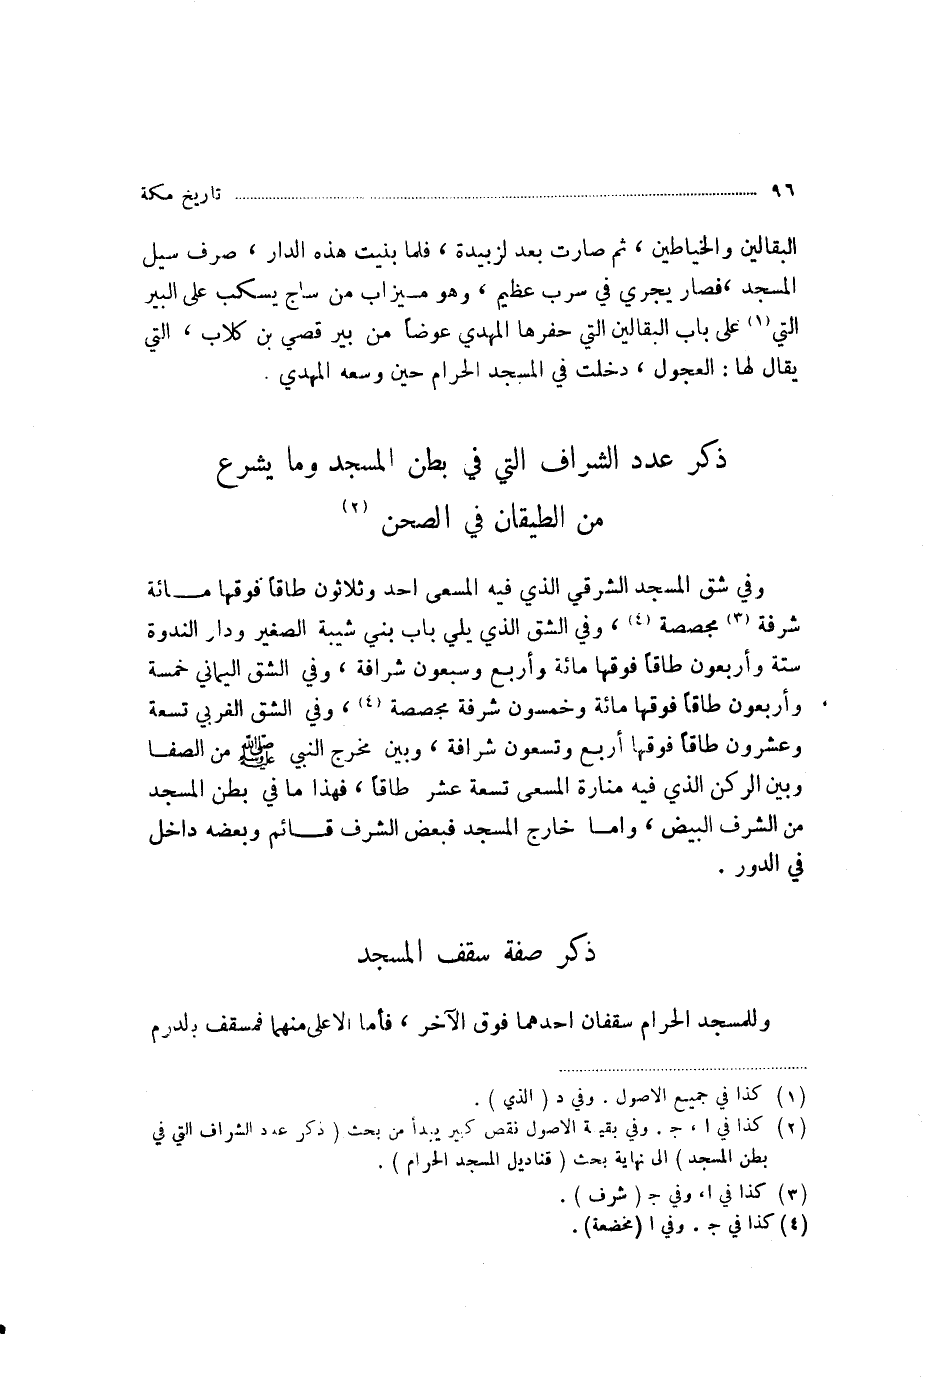 ٩٦ ........ تاريخ مكة
البقالين والخياطين ، ثم صارت بعد لزبيدة ، فلما بنيت هذه الدار ، صرف سيل
المسجد ، فصار يجري في سرب عظيم ، وهو ميزاب من ساج يسكب على البير
التي (١) على باب البقالين التي حفرها المهدي عوضاً من بير قصي بن كلاب ، التي
يقال لها : العجول ، دخلت في المسجد الحرام حين وسعه المهدي .
ذكر عدد الشراف التي في بطن المسجد وما يشرع
من الطيقان في الصحن (٢)
وفي شق المسجد الشرقي الذي فيه المسعى احد وثلاثون طاقاً فوقها مائة
شرفة (٣) مجصصة (٤) ، وفي الشق الذي يلي باب بني شيبة الصغير ودار الندوة
ستة وأربعون طاقاً فوقها مائة وأربع وسبعون شرافة ، وفي الشق اليماني خمسة
وأربعون طاقاً فوقها مائة وخمسون شرفة مجصصة (٤) ، وفي الشق الغربي تسعة
وعشرون طاقاً فوقها أربع وتسعون شرافة ، وبين مخرج النبي ﷺ من الصفا
وبين الركن الذي فيه منارة المسعى تسعة عشر طاقاً ، فهذا ما في بطن المسجد
من الشرف البيض ، واما خارج المسجد فبعض الشرف قائم وبعضه داخل
في الدور .
ذكر صفة سقف المسجد
وللمسجد الحرام سقفان احدهما فوق الآخر ، فأما الاعلى منهما فمسقف بلدرم
(١) كذا في جميع الاصول . وفي د ( الذي ) .
(٢) كذا في ا ، ج . وفي بقية الاصول نقص كبير يبدأ من بحث ( ذكر عدد الشراف التي في
بطن المسجد ) الى نهاية بحث ( قناديل المسجد الحرام ) .
(٣) كذا في ا، وفي ج ( شرف ) .
(٤) كذا في ج . وفي ا (مخضعة) .